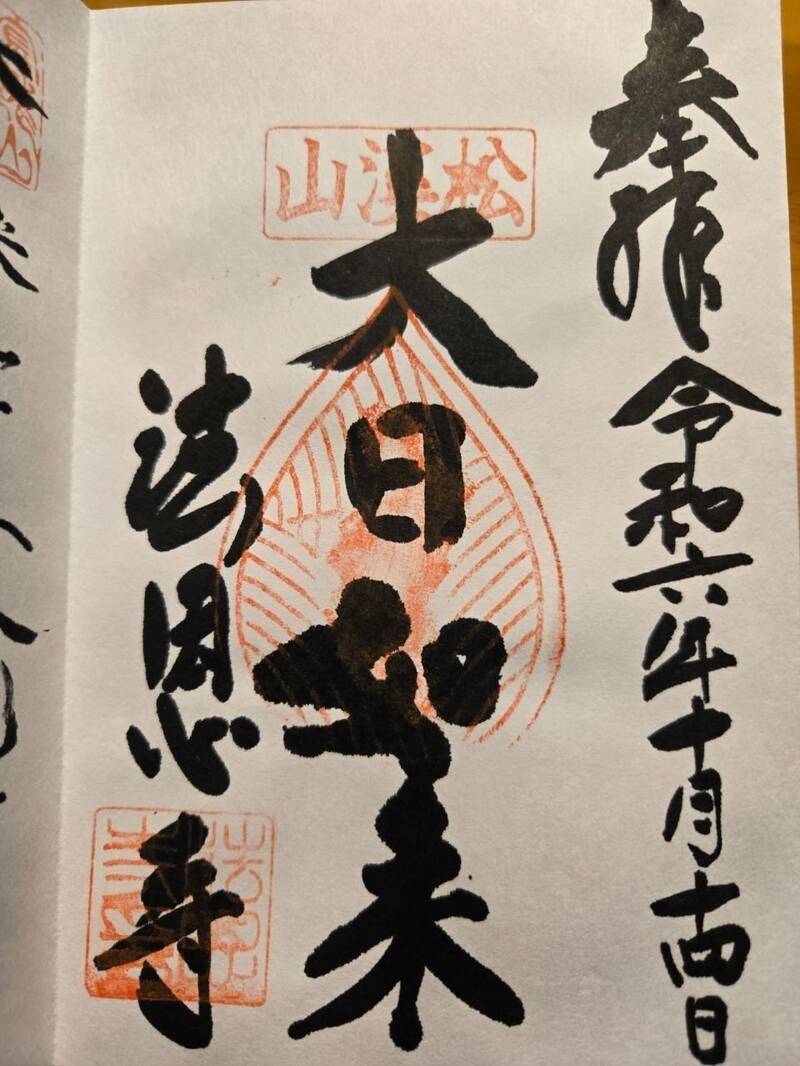 奉拝 令和六年十月十四日
松渓山
大日如来
法恩寺